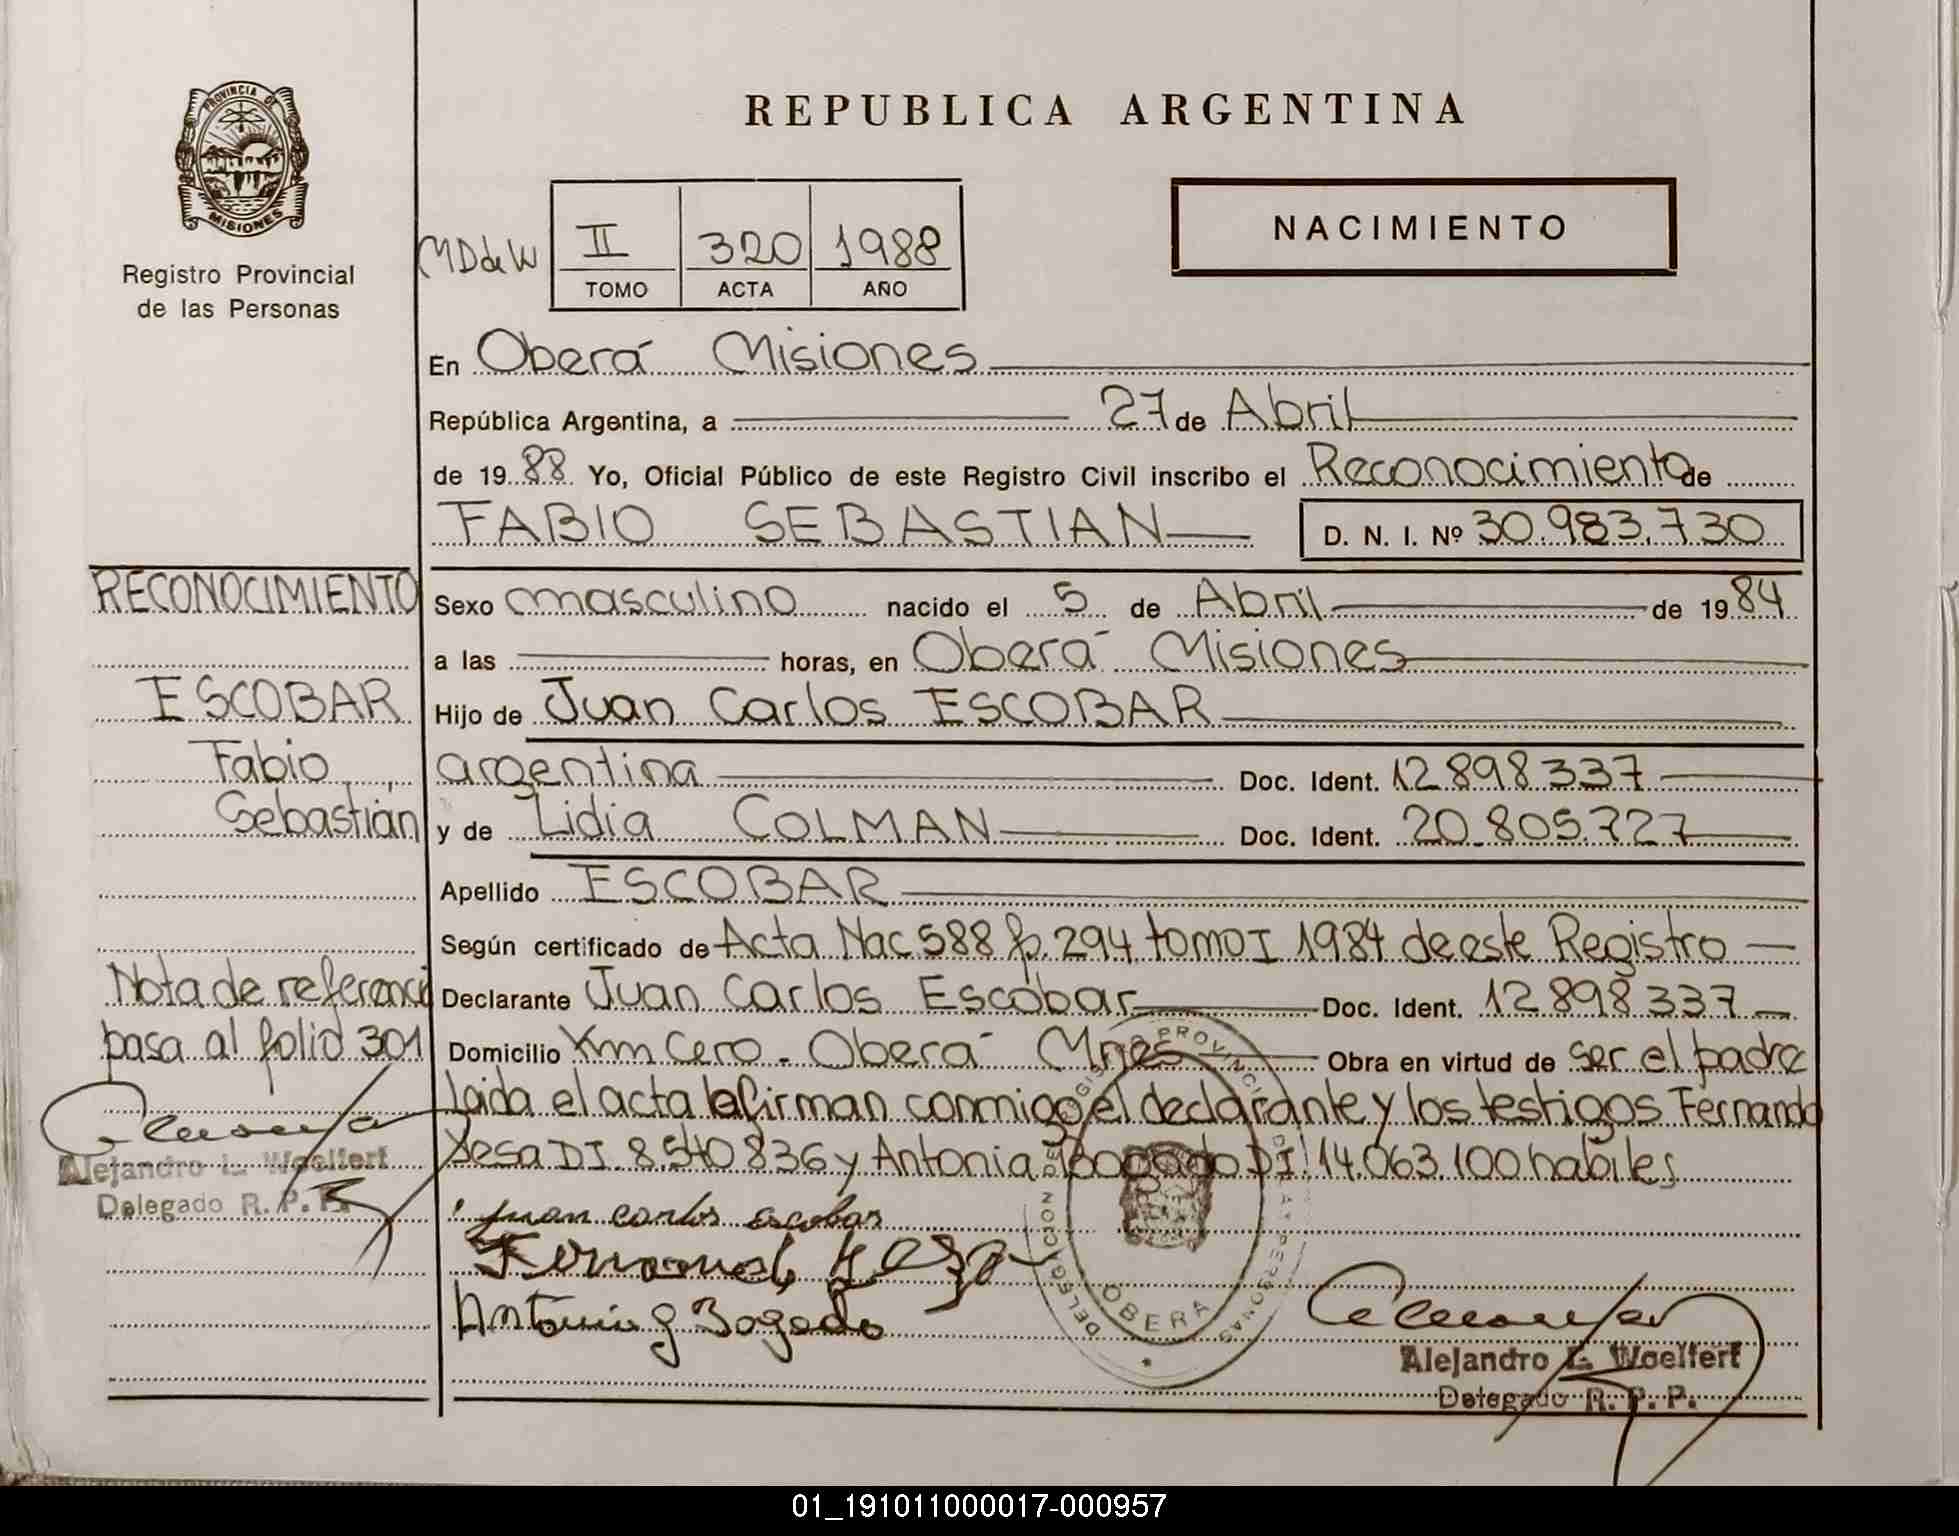 PROVINCIA DE
MISIONES
Registro Provincial
de las Personas
REPUBLICA ARGENTINA
NACIMIENTO
MD de W
II 320 1988
TOMO ACTA AÑO
En Oberá Misiones
República Argentina, a 27 de Abril
de 19 88 Yo, Oficial Público de este Registro Civil inscribo el Reconocimiento de
FABIO SEBASTIAN D. N. I. Nº 30.983.730
Sexo masculino nacido el 5 de Abril de 19 84
a las horas, en Oberá Misiones
Hijo de Juan Carlos ESCOBAR
argentina Doc. Ident. 12.898.337
y de Lidia COLMAN Doc. Ident. 20.805.727
Apellido ESCOBAR
Según certificado de Acta Nac 588 fº 294 tomo I 1984 de este Registro
Declarante Juan Carlos Escobar Doc. Ident. 12.898.337
Domicilio Km Cero - Oberá Mnes Obra en virtud de ser el padre
Leida el acta la firman conmigo el declarante y los testigos Fernando
Yesa DI 8.540.836 y Antonia Bogado DI 14.063.100 habiles
juan carlos escobar
Fernando Yesa
Antonia Bogado
RECONOCIMIENTO
ESCOBAR
Fabio
Sebastián
Nota de referencia
pasa al folio 301
Alejandro L. Woelfert
Delegado R. P. P.
DELEGACION DEL REGISTRO PROVINCIAL DE LAS PERSONAS
OBERA
Alejandro L. Woelfert
Delegado R. P. P.
01_191011000017-000957